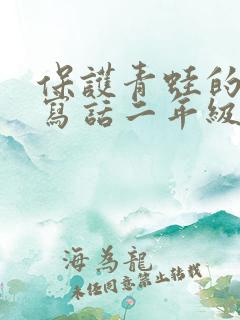 保護青蛙的
寫話二年級
海為龍
未經同意禁止轉載